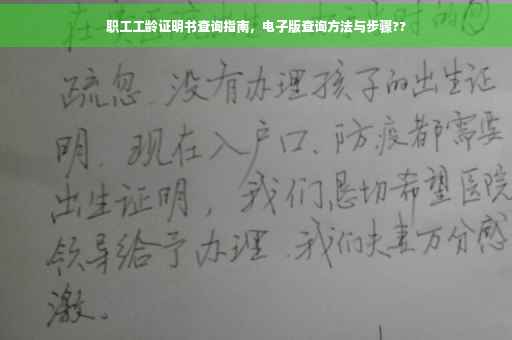 职工工龄证明书查询指南，电子版查询方法与步骤??
时的
疏忽、没有办理孩子的出生证
明、现在入户口、防疫都需要
出生证明，我们恳切希望医院
领导给予办理、我们夫妻万分感
激。